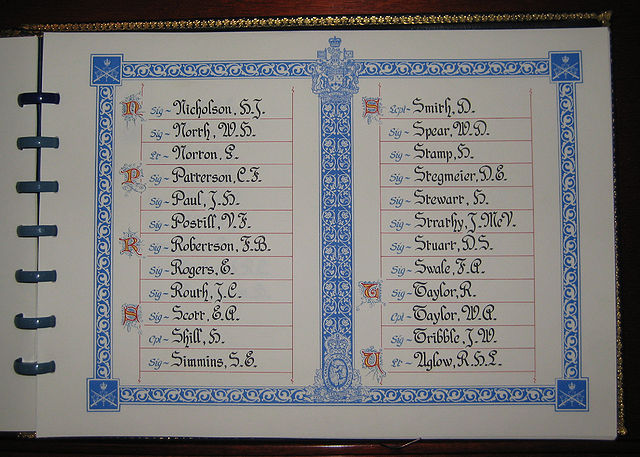 N Sig~ Nicholson, H.J.
Sig~ North, W.H.
Lt~ Norton, L.
P Sig~ Patterson, C.F.
Sig~ Paul, J.H.
Sig~ Postill, V.F.
R Sig~ Robertson, F.B.
Sig~ Rogers, E.
Sig~ Routh, J.C.
S Sig~ Scott, E.A.
Cpl~ Shill, H.
Sig~ Simmins, S.E.
S Lcpl~ Smith, D.
Sig~ Spear, W.D.
Sig~ Stamp, H.
Sig~ Stegmeier, D.E.
Sig~ Stewart, H.
Sig~ Strathy, J.McV.
Sig~ Stuart, D.S.
Sig~ Swale, F.A.
T Sig~ Taylor, R.
Cpl~ Taylor, W.A.
Sig~ Tribble, J.W.
U Lt~ Uglow, R.H.L.